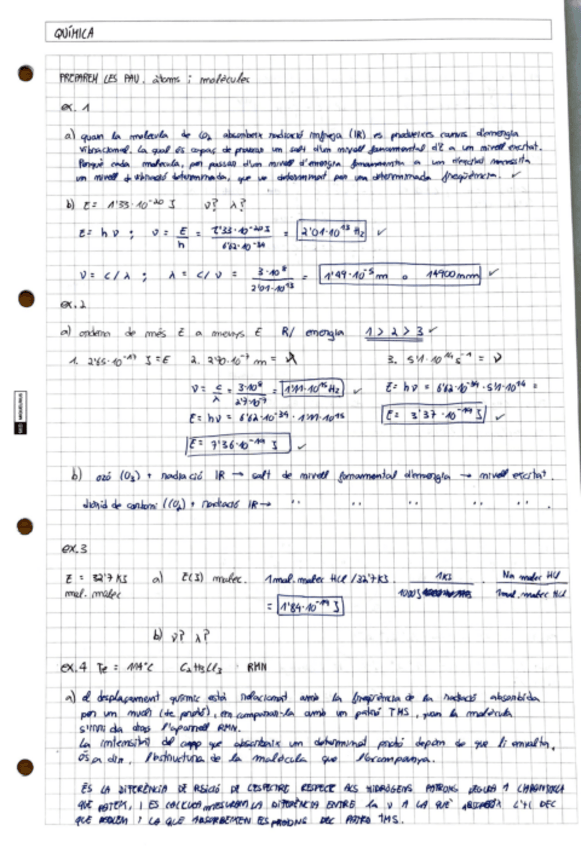 QUÍMICA
PREPAREM LES PAU. àtoms i molècules
ex. 1
a) quan la molècula de CO2 absorbeix radiació infraroja (IR) es produeixen canvis d'energia
vibracional, la qual és capaç de provocar un salt d'un nivell fonamental d'E a un nivell excitat.
Perquè cada molècula, per passar d'un nivell d'energia fonamental a un d'excitat necessita
un nivell de vibració determinada, que ve determinat per una determinada freqüència. ✓
b) E = 1'33·10^-20 J ν? λ?
E = h ν ; ν = E/h = 1'33·10^-20 J / 6'62·10^-34 = 2'01·10^13 Hz ✓
ν = c/λ ; λ = c/ν = 3·10^8 / 2'01·10^13 = 1'49·10^-5 m o 14900 nm ✓
ex. 2
a) ordena de més E a menys E R/ energia 1 > 2 > 3 ✓
1. 2'65·10^-17 J = E 2. 2'70·10^-7 m = λ 3. 5'1·10^14 s^-1 = ν
ν = c/λ = 3·10^8 / 2'7·10^-7 = 1'11·10^15 Hz ✓ E = hν = 6'62·10^-34 · 5'1·10^14 =
E = hν = 6'62·10^-34 · 1'11·10^15 E = 3'37·10^-19 J ✓
E = 7'36·10^-19 J ✓
b) ozó (O3) + radiació IR → salt de nivell fonamental d'energia → nivell excitat.
diòxid de carboni (CO2) + radiació IR → " " " " "
ex. 3
E = 32'7 KJ a) E(J) molec. 1 mol. molec HCl / 32'7 KJ. 1KJ Na molec HCl
mol. molec 1000 J 1 mol. molec HCl
= 1'84·10^-19 J
b) ν? λ?
ex. 4 Te = 114°C C2H3Cl3 RMN
a) el desplaçament químic està relacionat amb la freqüència de la radiació absorbida
per un nucli (de protó), en comparar-la amb un patró TMS, quan la molècula
dins l'aparell RMN.
La intensitat del camp que absorbeix un determinat protó depèn de què li envolta,
és a dir, l'estructura de la molècula que l'acompanya.
ÉS LA DIFERÈNCIA DE POSICIÓ DE L'ESPECTRE RESPECTE ALS HIDRÒGENS PATRONS
QUE , I ES CALCULA MESURANT LA DIFERÈNCIA ENTRE LA ν A LA QUÈ ABSORBEIX DEL
QUE I LA QUE ABSORBEIXEN ELS PROTONS DEL PATRÓ TMS.